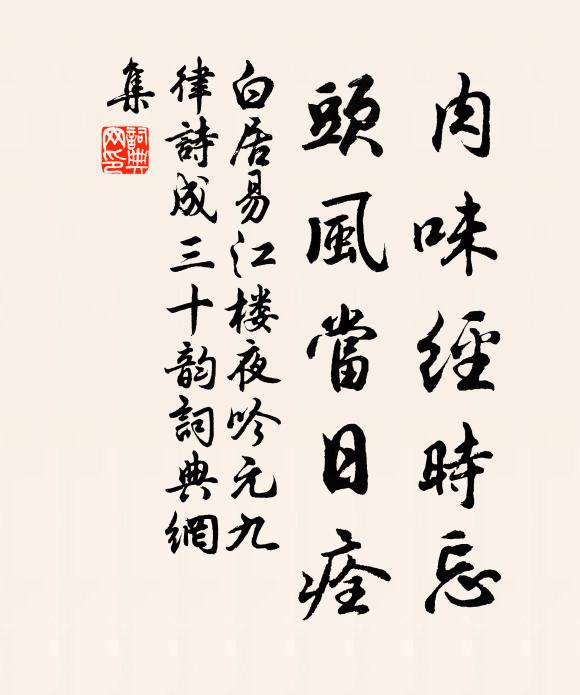 肉味經時忘
頭風當日痊
白居易江楼夜吟元九
律詩成三十韵詞典網
集
詞典網印